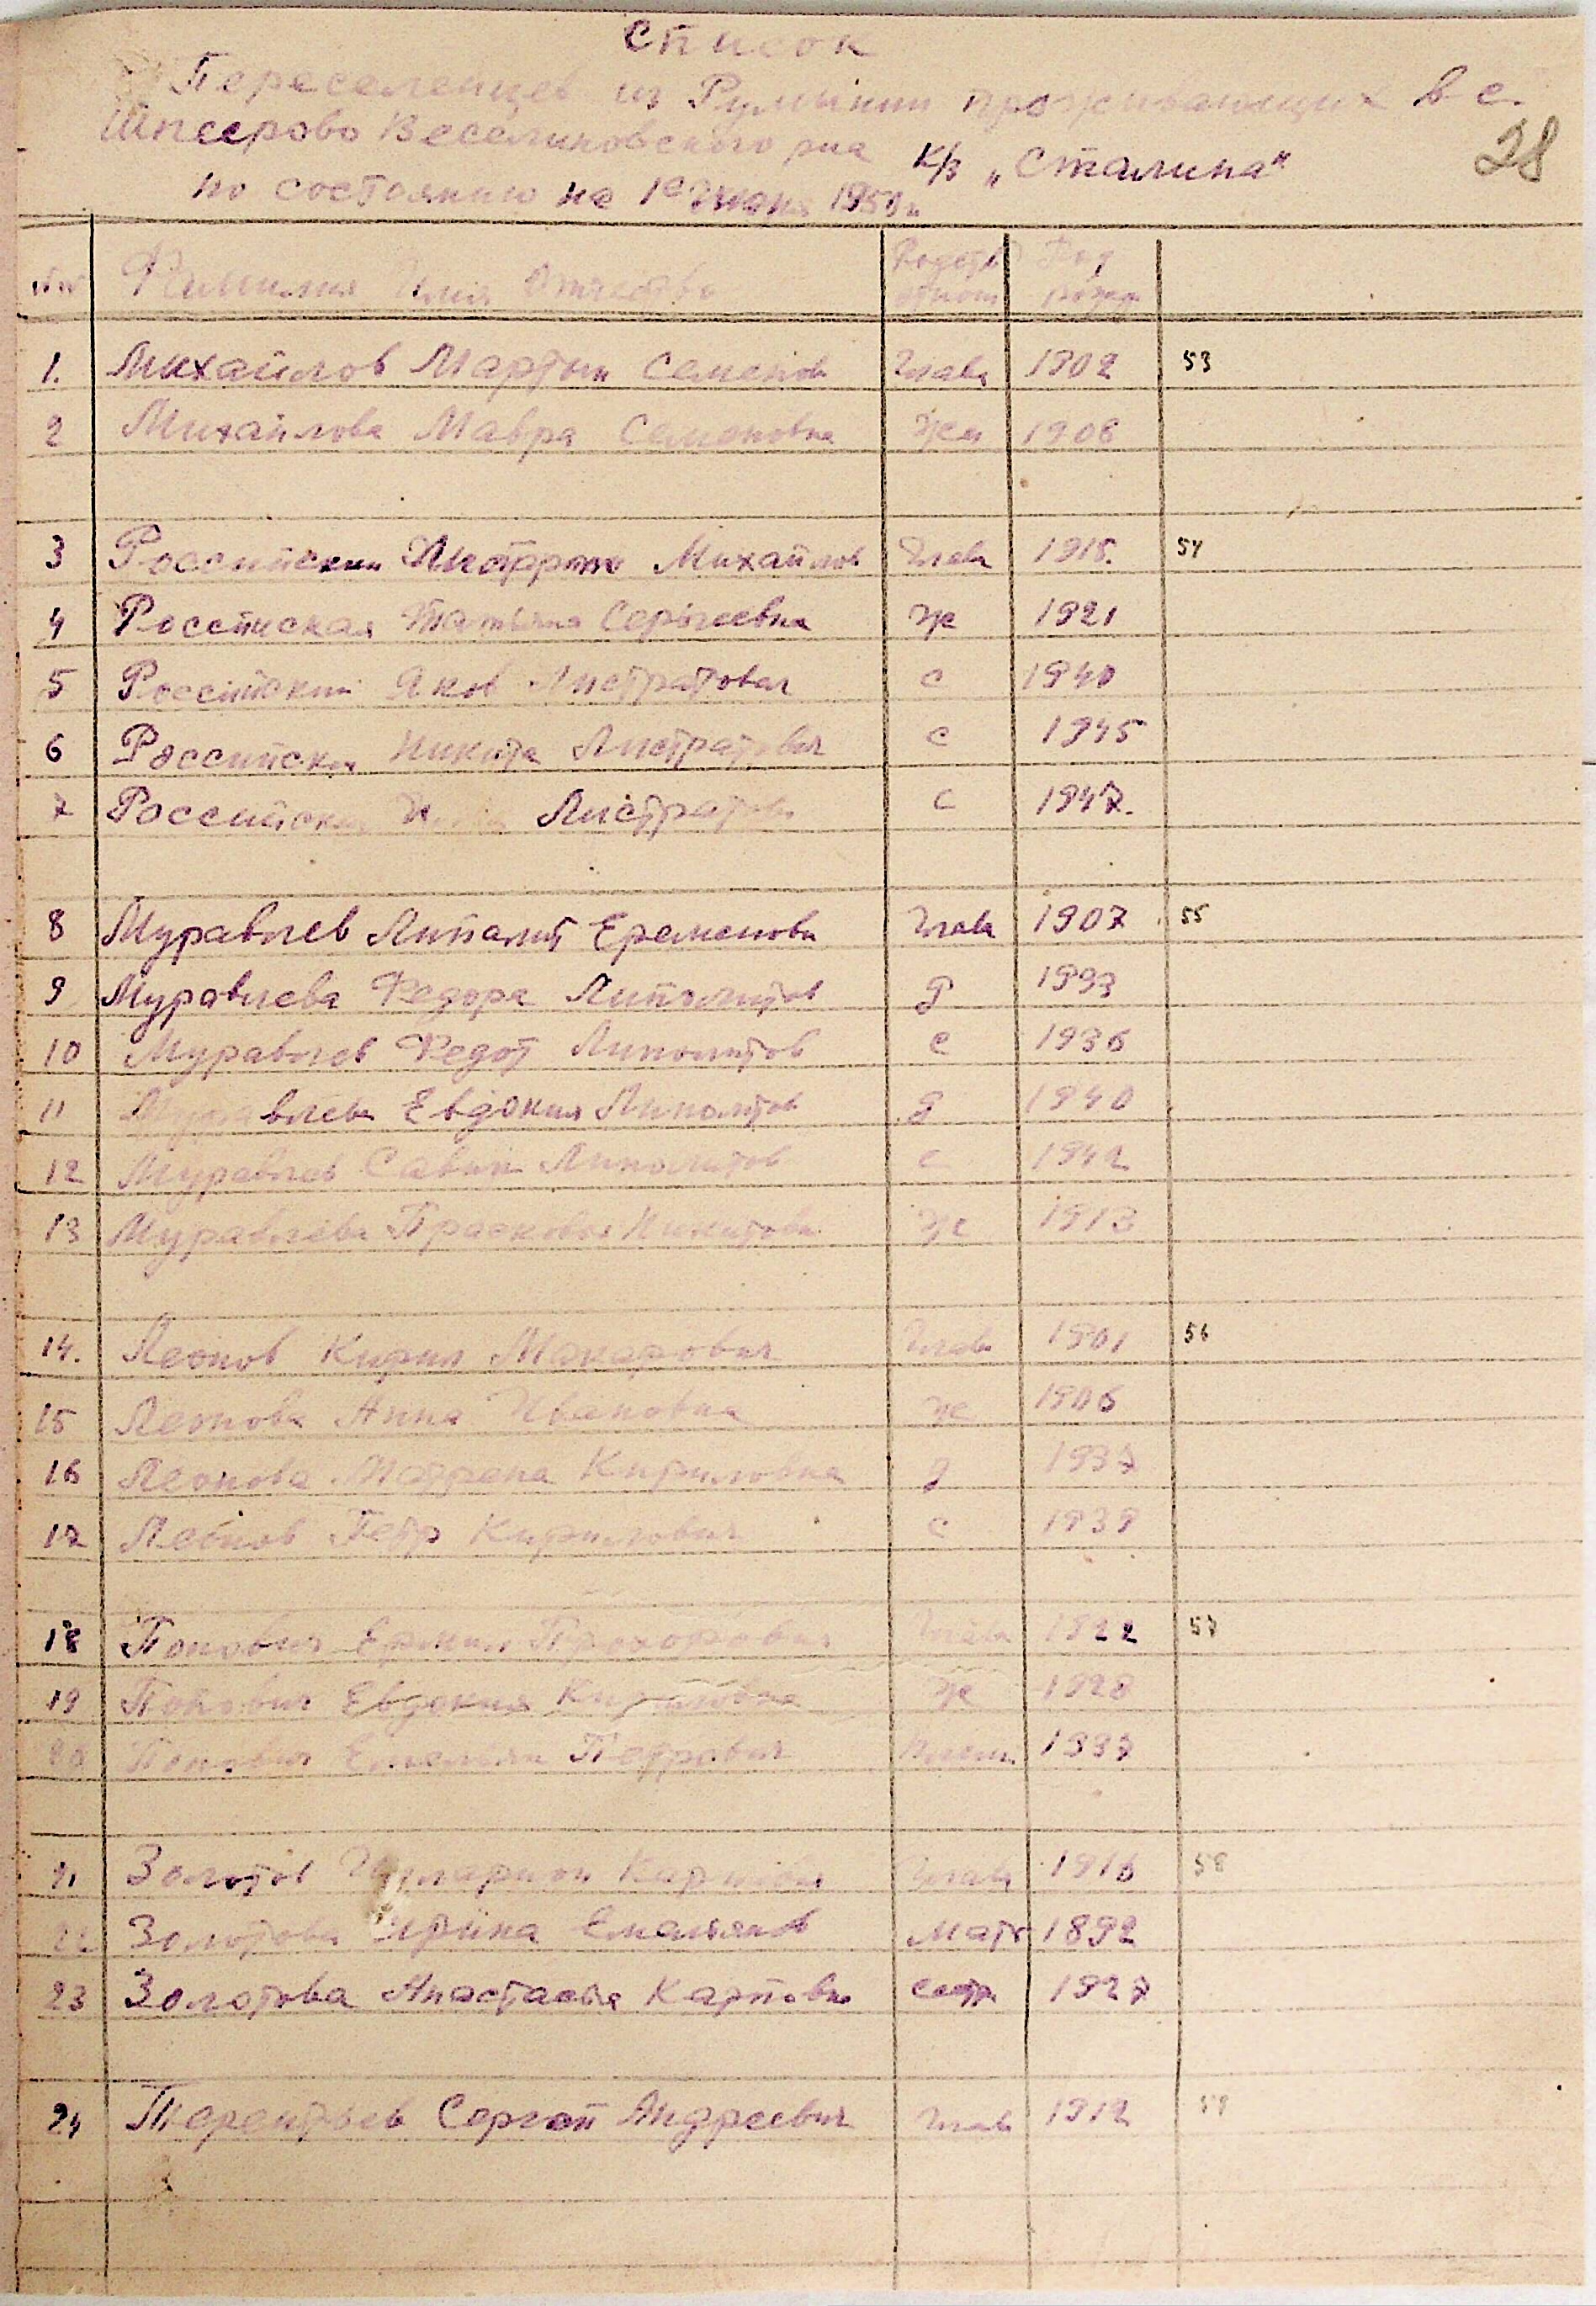 Список
Переселенцев из Румынии проживающих в с.
Веселиновского р-на к/з „Сталина" 28
по состоянию на 1е 1950 г.
№№ Фамилия Имя Отчество Родств отнош Год рожд
1. Михайлов Мартын Семенов Глава 1902 53
2 Михайлова Мавра Семеновна Жен 1908
3 Российский Михайлов Глава 1915. 54
4 Россииская Татьяна Сергеевна Же 1921
5 Российский Яков Листратович с 1940
6 Российски Никита Листратович с 1945
7 Российски Листратов с 1947.
8 Муравлев Липалит Еременови Глава 1907 55
9 Муравлева Федора Липалитов д 1933
10 Муравлев Федот Липолитов с 1936
11 Муравлева Евдокия Липолитов д 1940
12 Муравлев Савин Липолитов с 1942
13 Муравлева Прасковья Никитовн Же 1913
14. Леонов Кирил Макарович Глава 1901 56
15 Леонова Анна Ивановна Же 1906
16 Леонова Матрена Кириловна д 1937
17 Леонов Петр Кирилович с 1939
18 Попович Ермил Прохорович Глава 1922 57
19 Попович Евдокия Кириловна Же 1928
20 Попович Емельян Петрович 1937
21 Золотов Иларион Карпович Глава 1916 58
22 Золотова Ирина Емельянов Мать 1892
23 Золотова Анастасья Карповна сестр 1927
24 Терентьев Сергей Андреевич Глав 1912 59